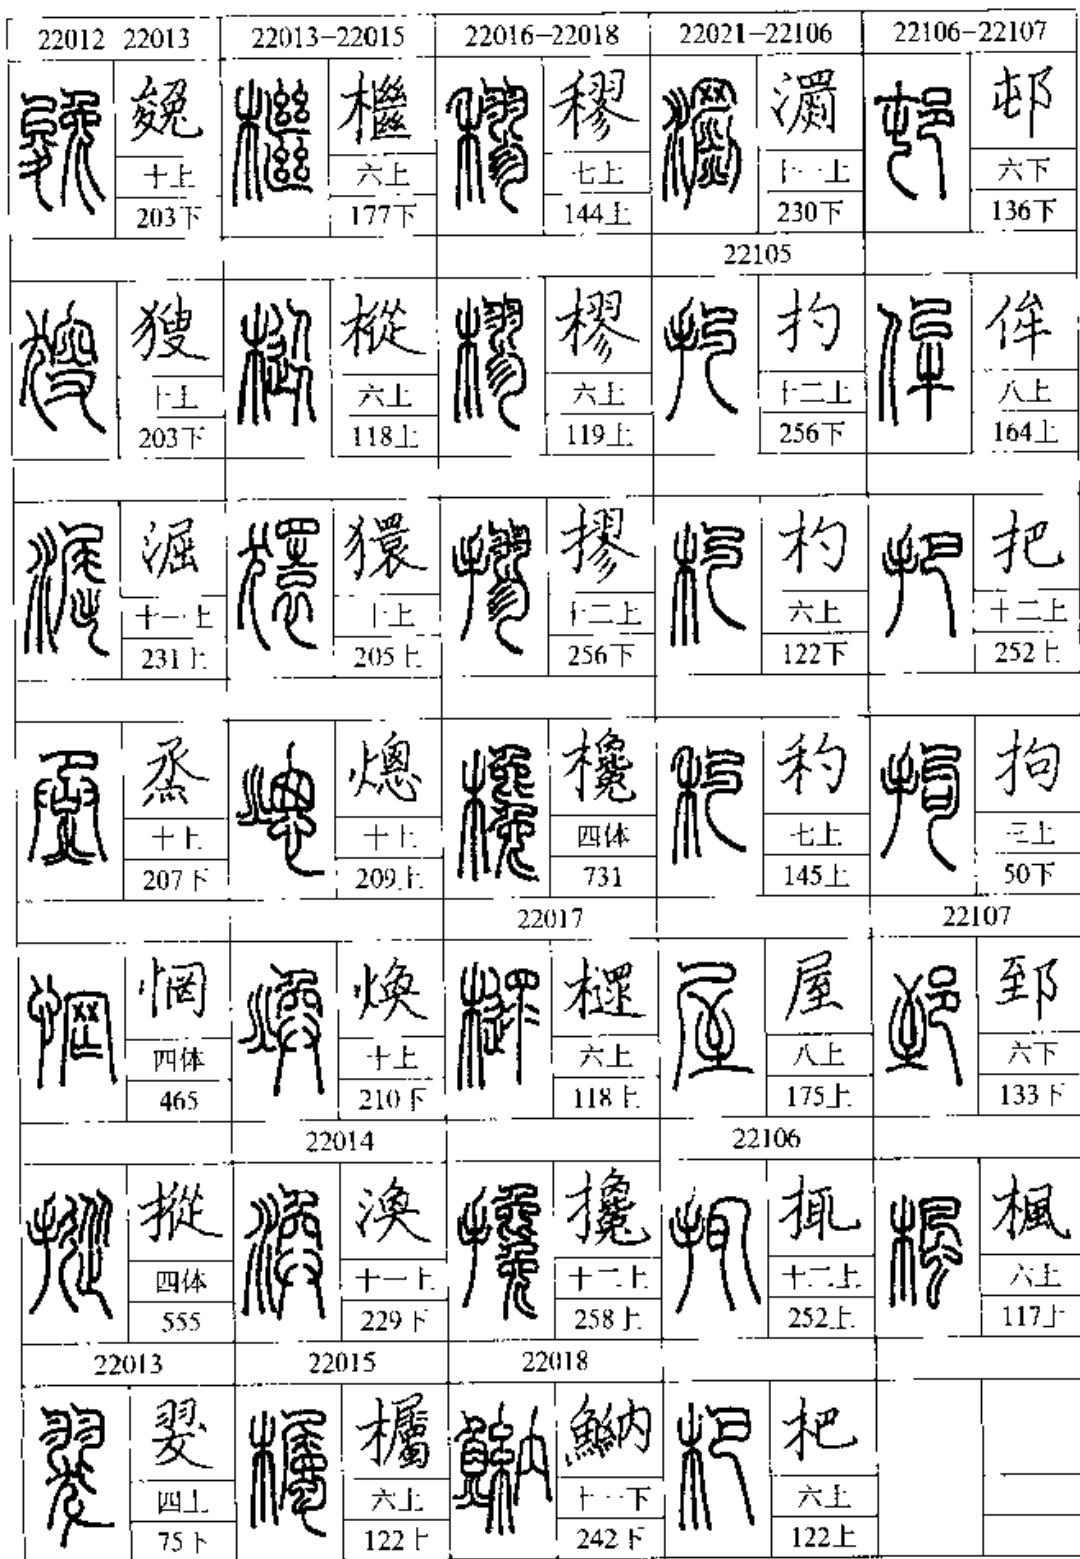 22012 22013
㕙
十上
203下
獀
十上
203下
淈
十一上
231上
烝
十上
207下
惘
四体
465
摐
四体
555
22013
翇
四上
75下
22013-22015
檵
六上
177下
樅
六上
118上
獧
十上
205上
熜
十上
209上
煥
十上
210下
22014
渙
十一上
229下
22015
欘
六上
122上
22016-22018
穋
七上
144上
樛
六上
119上
摎
十二上
256下
欃
四体
731
22017
㯚
六上
118上
攙
十二上
258上
22018
十一下
242下
22021-22106
十一上
230下
22105
扚
十二上
256下
杓
六上
122下
䄪
七上
145上
屋
八上
175上
22106
十二上
252上
杷
六上
122上
22106-22107
邨
六下
136下
侔
八上
164上
把
十二上
252上
拘
三上
50下
22107
郅
六下
133下
楓
六上
117上